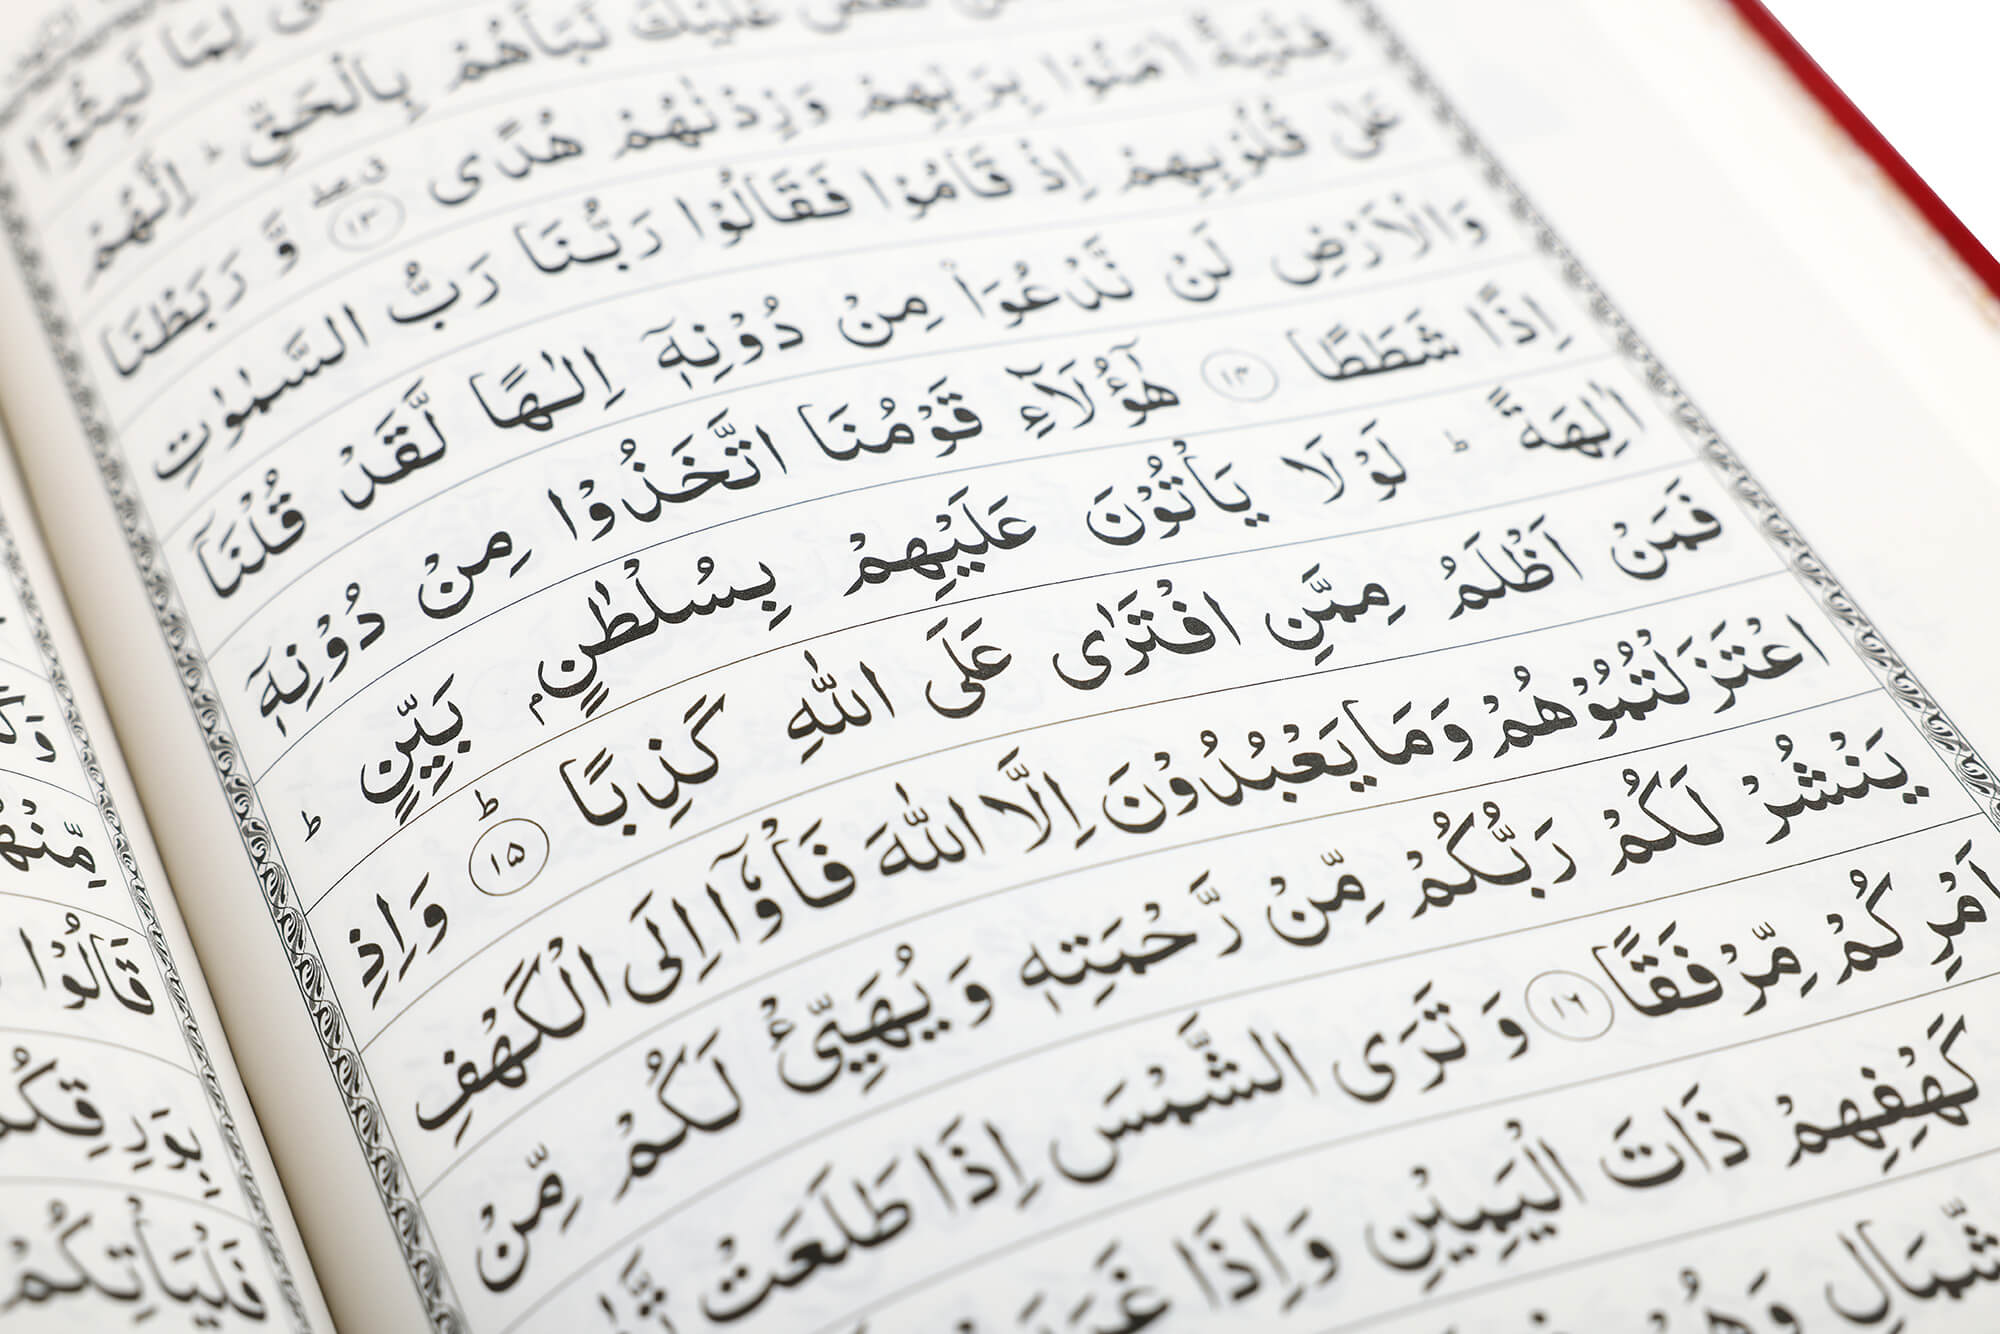 لِمَا لَبِثُوْۤا
عَلَيْكَ نَبَاَهُمْ بِالْحَقِّ ؕ اِنَّهُمْ
فِتْيَةٌ اٰمَنُوْا بِرَبِّهِمْ وَزِدْنٰهُمْ هُدًى ۝۱۳ وَّ رَبَطْنَا
عَلٰى قُلُوْبِهِمْ اِذْ قَامُوْا فَقَالُوْا رَبُّنَا رَبُّ السَّمٰوٰتِ
وَالْاَرْضِ لَنْ نَّدْعُوَا۠ مِنْ دُوْنِهٖۤ اِلٰهًا لَّقَدْ قُلْنَاۤ
اِذًا شَطَطًا ۝۱۴ هٰۤؤُلَآءِ قَوْمُنَا اتَّخَذُوْا مِنْ دُوْنِهٖۤ
اٰلِهَةً ؕ لَوْلَا يَاْتُوْنَ عَلَيْهِمْ بِسُلْطٰنٍۭ بَيِّنٍ ؕ
فَمَنْ اَظْلَمُ مِمَّنِ افْتَرٰى عَلَى اللّٰهِ كَذِبًا ؕ۝۱۵ وَاِذِ
اعْتَزَلْتُمُوْهُمْ وَمَا يَعْبُدُوْنَ اِلَّا اللّٰهَ فَاْوٗۤا اِلَى الْكَهْفِ
يَنْشُرْ لَكُمْ رَبُّكُمْ مِّنْ رَّحْمَتِهٖ وَيُهَيِّئْ لَكُمْ مِّنْ
اَمْرِكُمْ مِّرْفَقًا ۝۱۶ وَتَرَى الشَّمْسَ اِذَا طَلَعَتْ
كَهْفِهِمْ ذَاتَ الْيَمِيْنِ وَاِذَا
قَالُوْا
فَلْيَاْتِكُمْ